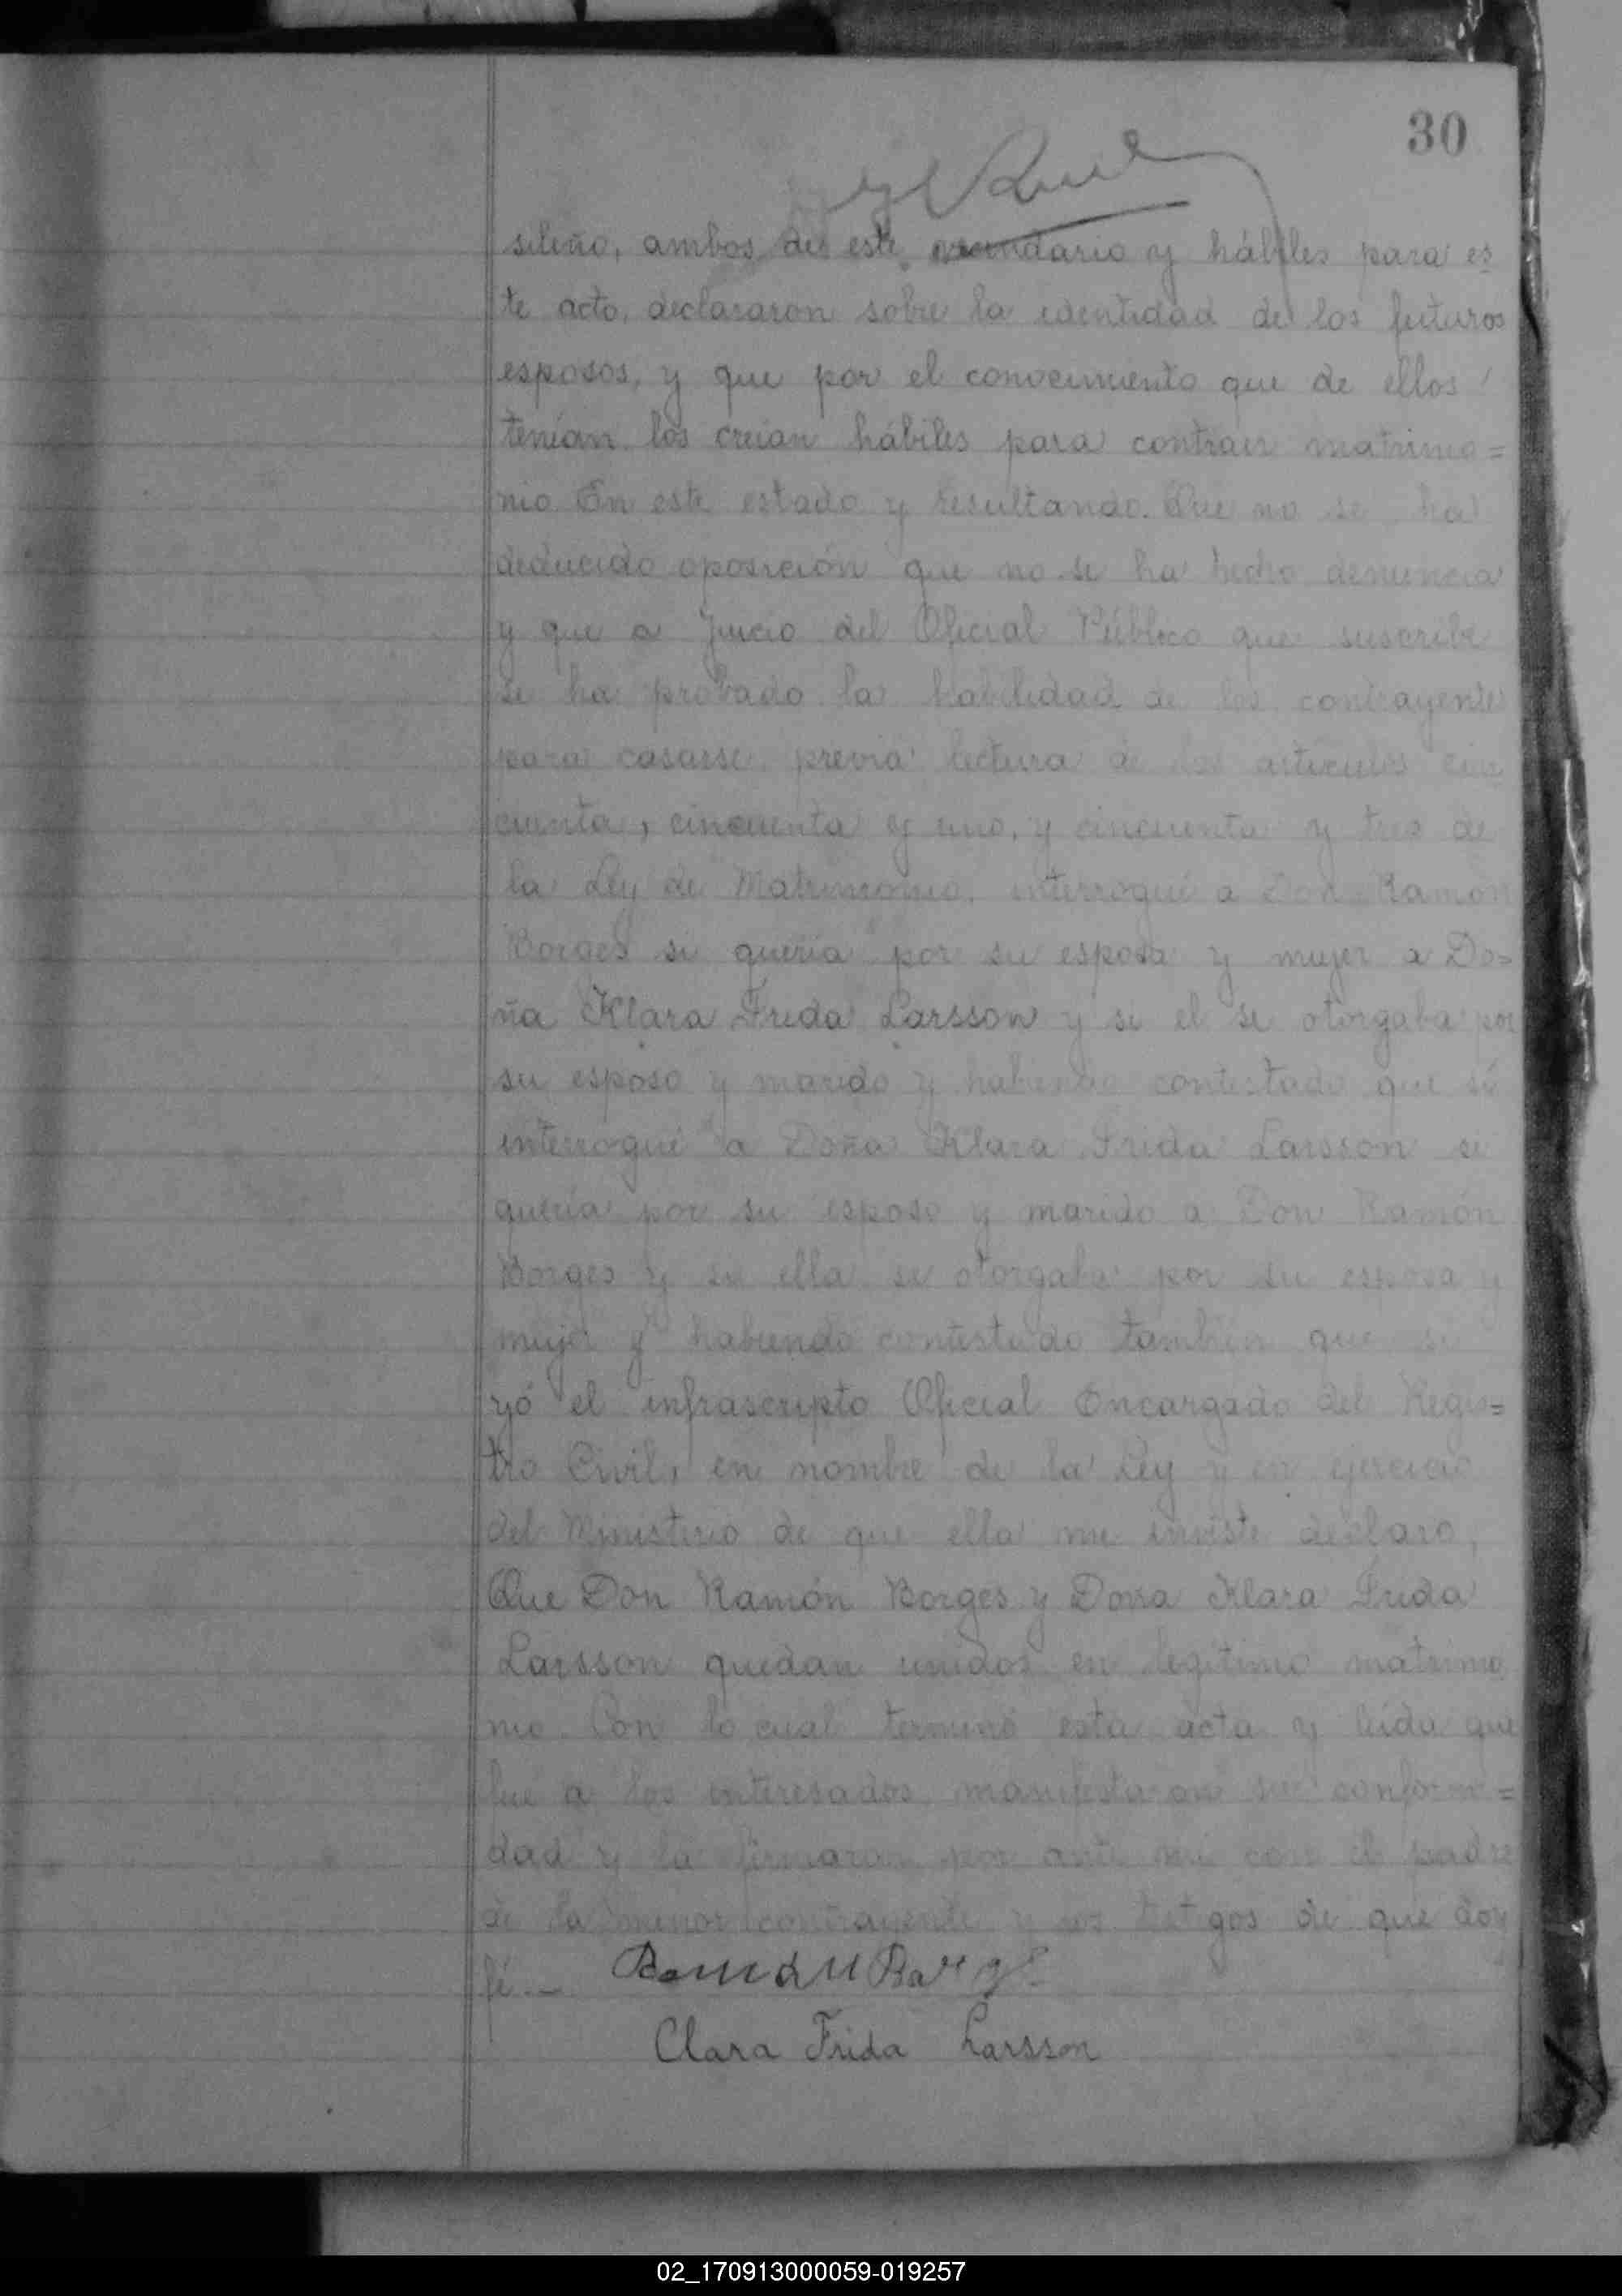 30
sileño, ambos de este vecindario y hábiles para es
te acto, declararon sobre la identidad de los futuros
esposos, y que por el conocimiento que de ellos
tenían los creían hábiles para contraer matrimo=
nio. En este estado y resultando. Que no se ha
deducido oposición que no se ha hecho denuncia
y que a juicio del Oficial Público que suscribe
se ha probado la habilidad de los contrayentes
para casarse, previa lectura de los artículos cin
cuenta, cincuenta y uno, y cincuenta y tres de
la Ley de Matrimonio, interrogué a Don Ramón
Borges si quería por su esposa y mujer a Do=
ña Klara Frida Larsson y si el se otorgaba por
su esposo y marido y habiendo contestado que sí
interrogué a Doña Klara Frida Larsson si
quería por su esposo y marido a Don Ramón
Borges y si ella se otorgaba por su esposa y
mujer y habiendo contestado también que si
yó el infrascripto Oficial Encargado del Regis=
tro Civil, en nombre de la Ley y en ejercicio
del Ministerio de que ella me inviste declaro,
Que Don Ramón Borges y Doña Klara Frida
Larsson quedan unidos en legítimo matrimo
nio. Con lo cual terminó esta acta y leída que
fue a los interesados manifestaron su conformi=
dad y la firmaran por ante mi con el padre
de la menor contrayente y los testigos de que doy
fé.—
Ramón Borges
Clara Frida Larsson
02_170913000059-019257